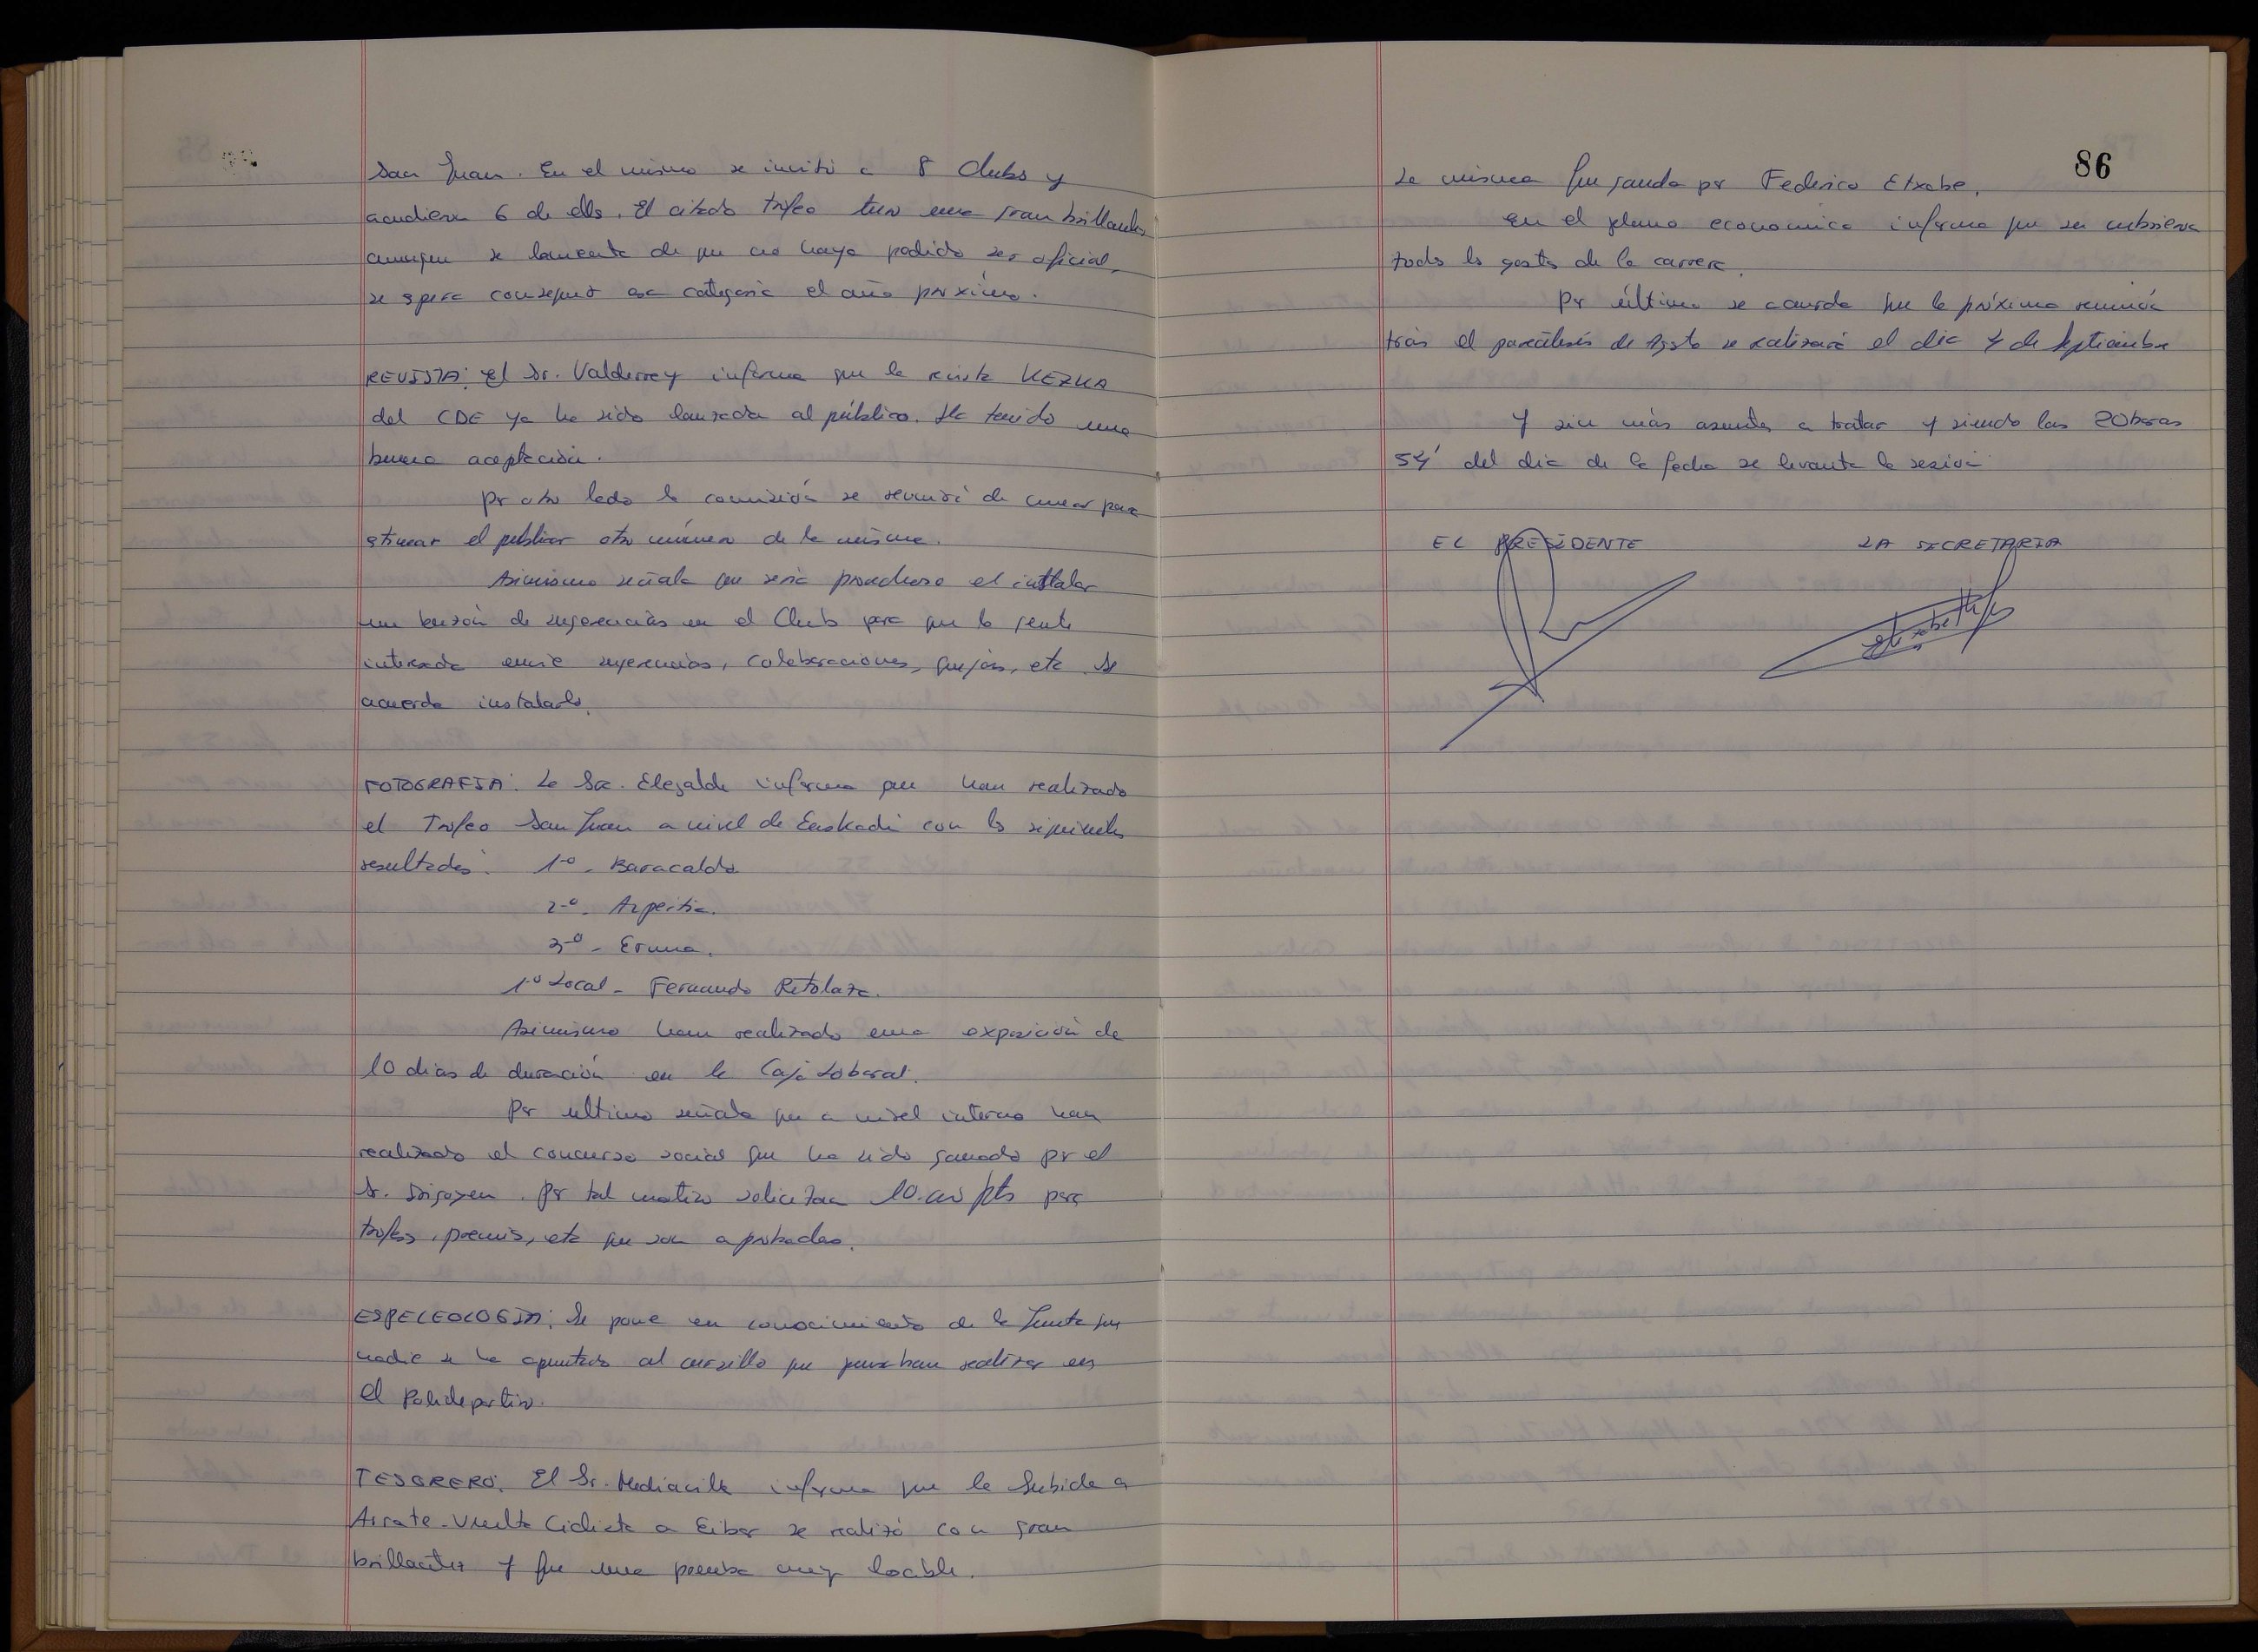 San Juan. En el mismo se invitó a 8 Clubs y
acudieron 6 de ellos. El citado trofeo tuvo una gran brillantez
aunque se lamenta de que no haya podido ser oficial,
se espera conseguir esa categoria el año próximo.
REVISTA: El Sr. Valderrey informa que la revista KEZKA
del CDE ya ha sido lanzada al público. Ha tenido una
buena aceptación.
Por otro lado la comisión se reunirá de nuevo para
estimar el publicar otro número de la misma.
Asimismo señala que seria provechoso el instalar
un buzón de sugerencias en el Club para que la gente
interesada envie sugerencias, colaboraciones, quejas, etc. Se
acuerda instalarlo.
FOTOGRAFIA: La Sra. Elegalde informa que han realizado
el Trofeo San Juan a nivel de Euskadi con los siguientes
resultados: 1º - Baracaldo
2º - Azpeitia.
3º - Ermua.
1º Local - Fernando Retolaza.
Asimismo han realizado una exposición de
10 dias de duración en la Caja Laboral.
Por ultimo señala que a nivel interno han
realizado el concurso social que ha sido ganado por el
Sr. Irigoyen. Por tal motivo solicitan 10.000 pts para
trofeos, premios, etc que son aprobadas.
ESPELEOLOGIA: Se pone en conocimiento de la Junta que
nadie se ha apuntado al cursillo que pensaban realizar en
el Polideportivo.
TESORERO: El Sr. Mediavilla informa que la Subida a
Arrate - Vuelta Ciclista a Eibar se realizó con gran
brillantez y fue una prueba muy loable.
86
La misma fue ganada por Federico Etxabe.
En el plano economico informa que se cubrieron
todos los gastos de la carrera.
Por último se acuerda que la próxima reunión
trás el paréntesis de Agosto se realizará el dia 4 de Septiembre
Y sin más asuntos a tratar y siendo las 20 horas
54' del dia de la fecha se levanta la sesión
EL PRESIDENTE LA SECRETARIA